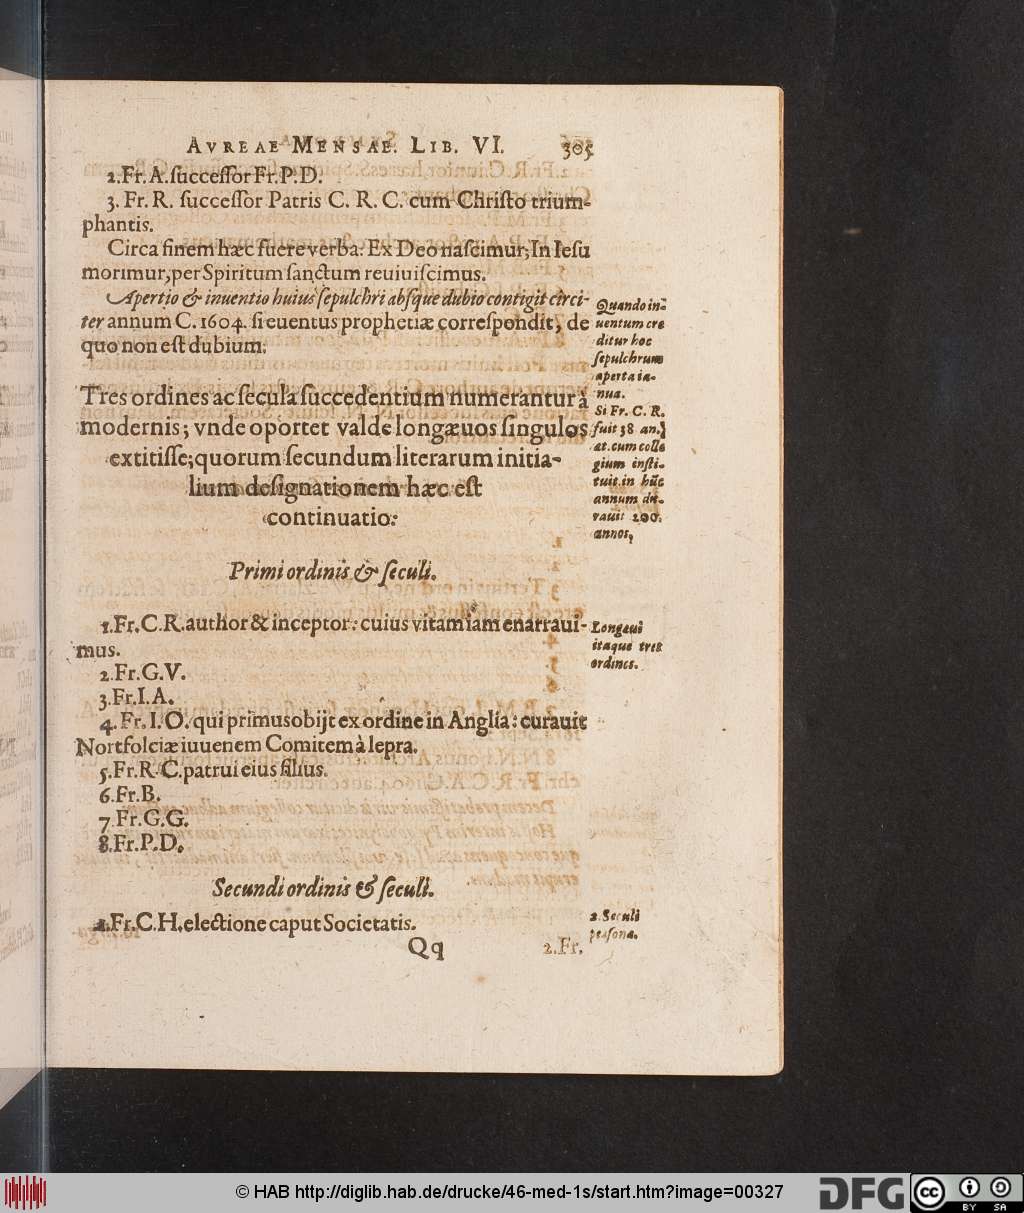 AVREAE MENSAE. LIB. VI. 305
2. Fr. A. ſucceſſor Fr. P. D.
3. Fr. R. ſucceſſor Patris C. R. C. cum Chriſto trium-
phantis.
Circa finem hæc fuere verba: Ex Deo naſcimur; In Ieſu
morimur, per Spiritum ſanctum reuiuiſcimus.
Apertio & inuentio huius ſepulchri abſque dubio contigit circi-
ter annum C. 1604. ſi euentus prophetiæ correſpondit, de
quo non eſt dubium.
Quando in-
uentum cre
ditur hoc
ſepulchrum
aperta ia-
nua.
Si Fr. C. R.
fuit 38 an.
at. cum colle
gium inſti-
tuit, in hũc
annum du-
rauit 200.
annos,
Tres ordines ac ſecula ſuccedentium numerantur à
modernis; vnde oportet valde longæuos ſingulos
extitiſſe; quorum ſecundum literarum initia-
lium deſignationem hæc eſt
continuatio:
Primi ordinis & ſeculi.
1. Fr. C. R. author & inceptor: cuius vitam iam enarraui-
mus.
Longeui
itaque tres
ordines.
2. Fr. G. V.
3. Fr. I. A.
4. Fr. I. O. qui primus obijt ex ordine in Anglia: curauit
Nortfolciæ iuuenem Comitem à lepra.
5. Fr. R. C. patrui eius filius.
6. Fr. B.
7 Fr. G. G.
8. Fr. P. D.
Secundi ordinis & ſeculi.
1. Fr. C. H. electione caput Societatis.
2. Seculi
perſona.
Qq 2. Fr.
© HAB http://diglib.hab.de/drucke/46-med-1s/start.htm?image=00327
DFG
cc BY SA